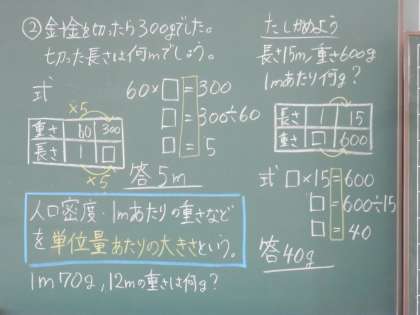 ②針金を切ったら300gでした。
切った長さは何mでしょう。
式 60×□=300
□=300÷60
□=5
×5
重さ 60 300
長さ 1 □
×5
答5m
人口密度・1mあたりの重さなど
を単位量あたりの大きさという。
1m70g,12mの重さは何g?
たしかめよう
長さ15m/重さ600g
1mあたり何g?
長さ 1 15
重さ □ 600
式 □×15=600
□=600÷15
□=40
答40g